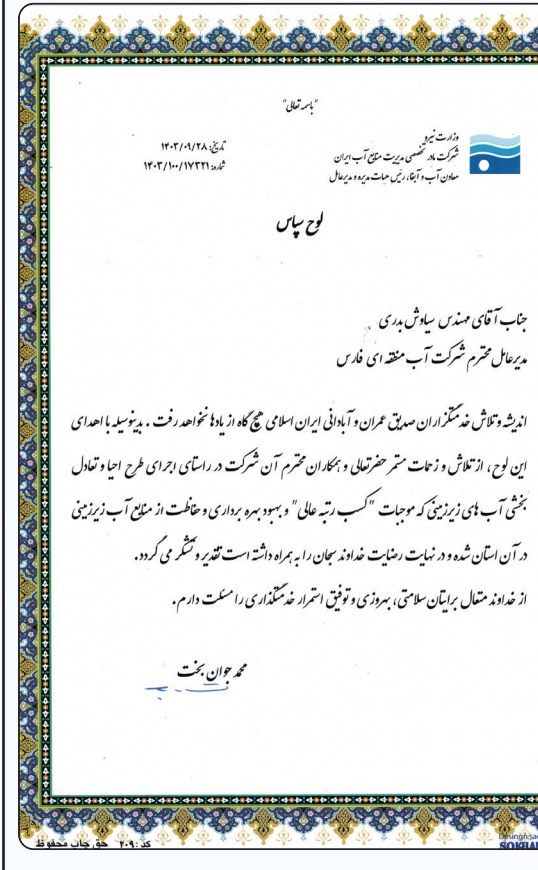 "باسمه تعالی"
وزارت نیرو
شرکت مادر تخصصی مدیریت منابع آب ایران
معاون آب و آبفا، رئیس هیات مدیره و مدیرعامل
تاریخ: ۱۴۰۳/۰۹/۲۸
شماره: ۱۴۰۳/۱۰۰/۱۷۳۲۱
لوح سپاس
جناب آقای مهندس سیاوش بدری
مدیرعامل محترم شرکت آب منطقه ای فارس
اندیشه و تلاش خدمتگزاران صدیق عمران و آبادانی ایران اسلامی هیچ گاه از یادها نخواهد رفت. بدینوسیله با اهدای
این لوح، از تلاش و زحمات مستمر حضرتعالی و همکاران محترم آن شرکت در راستای اجرای طرح احیا و تعادل
بخشی آب های زیرزمینی که موجبات "کسب رتبه عالی" و بهبود بهره برداری و حفاظت از منابع آب زیرزمینی
در آن استان شده و در نهایت رضایت خداوند سبحان را به همراه داشته است تقدیر و تشکر می گردد.
از خداوند متعال برایتان سلامتی، بهروزی و توفیق استمرار خدمتگذاری را مسئلت دارم.
محمد جوان بخت
کد: ۲۰۹ حق چاپ محفوظ